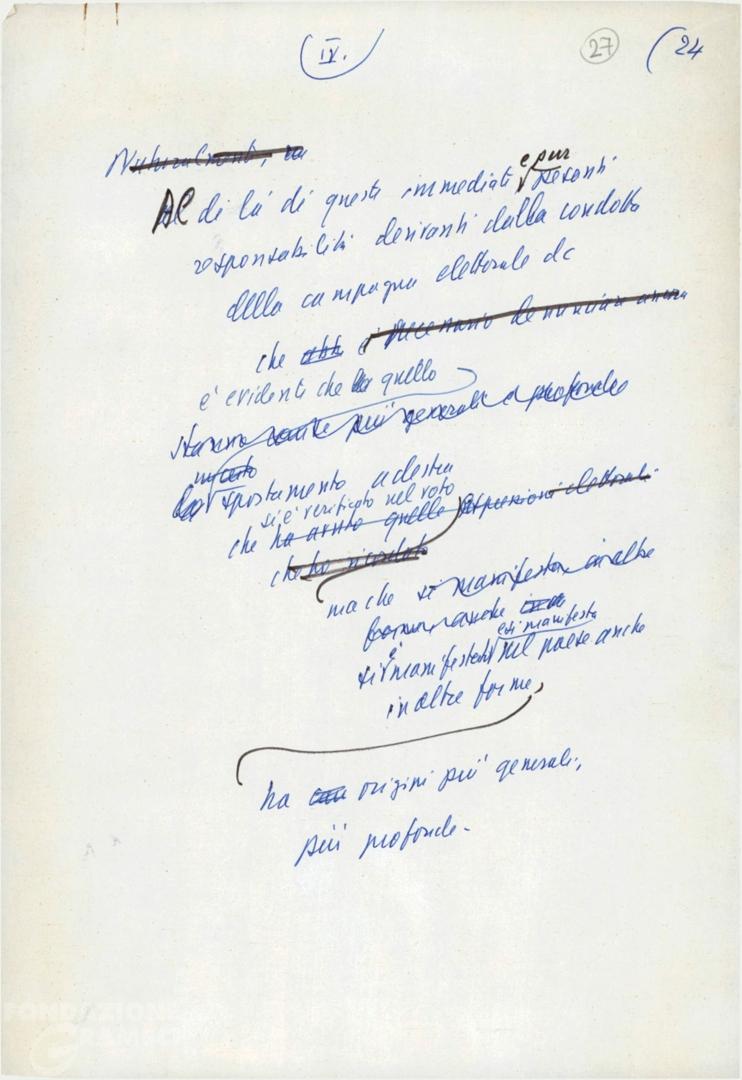 (IV.)
27
(24
Naturalmente, la
Al di là di queste immediate e pur pesanti
responsabilità derivanti dalla condotta
della campagna elettorale dc
che è necessario denunciare ancora
è evidente che quello
hanno cause più generali e profonde
spostamento a destra
si è verificato nel voto
che ha avuto quelle espressioni elettorali
che ho ricordato
ma che si manifesta in altre
forme anche
e si manifesta
si è manifestato nel paese anche
in altre forme,
ha origini più generali,
più profonde.
FONDAZIONE
GRAMSCI